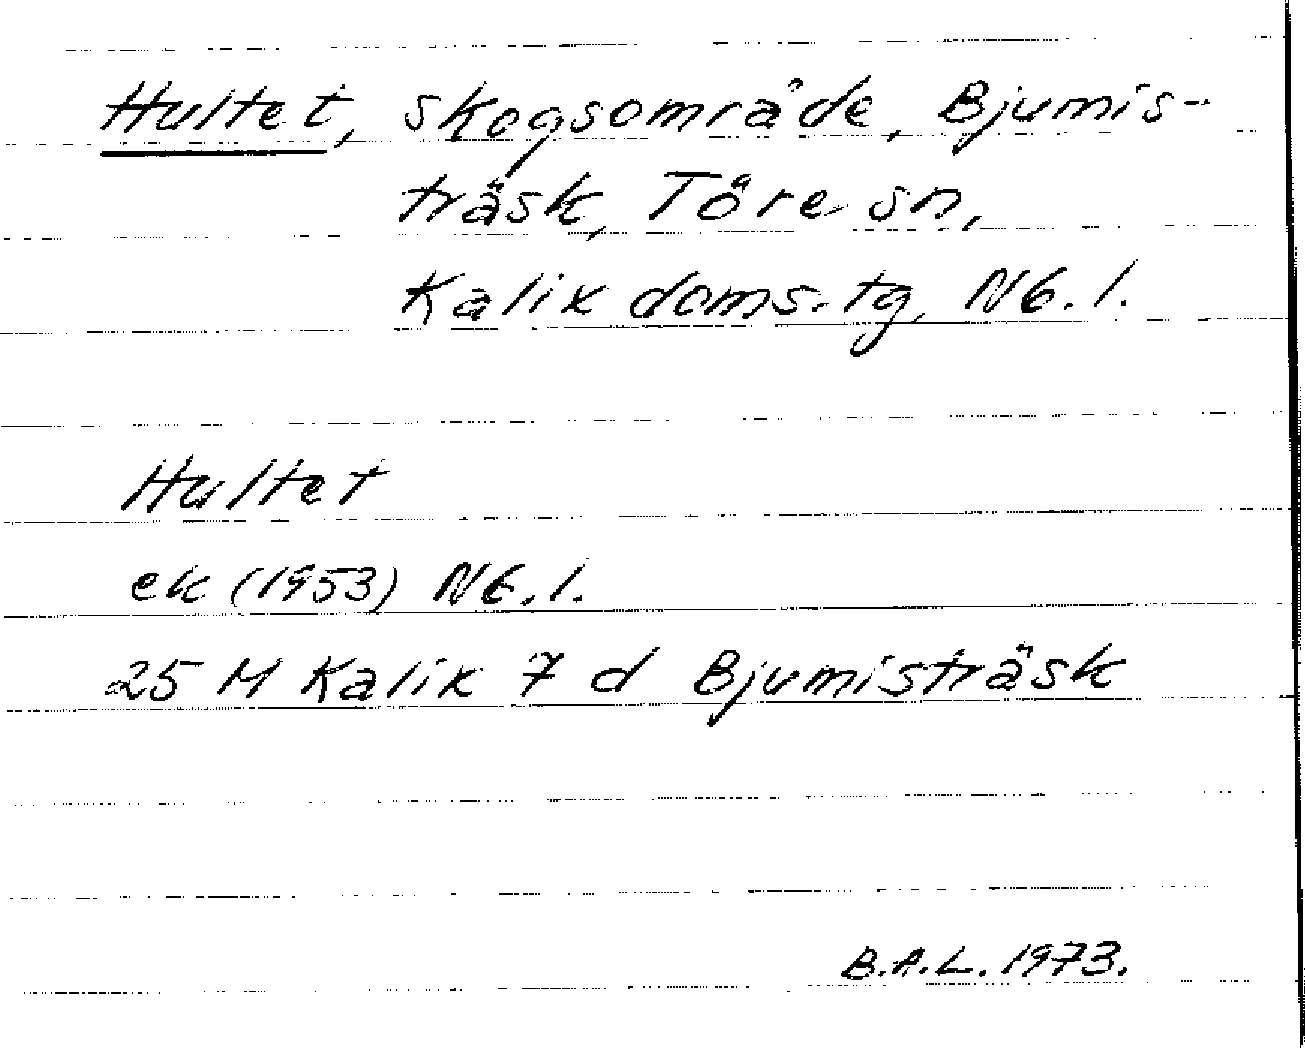 Hultet, skogsområde, Bjumis-
träsk, Töre sn,
Kalix doms.tg, Nb.l.
Hultet
ek (1953) Nb.l.
25 M Kalix 7 d Bjumisträsk
B.A.L. 1973.